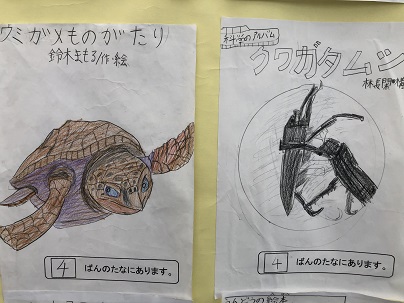 ウミガメものがたり
鈴木まもる/作・絵
4 ばんのたなにあります。
科学のアルバム
クワガタムシ
4 ばんのたなにあります。